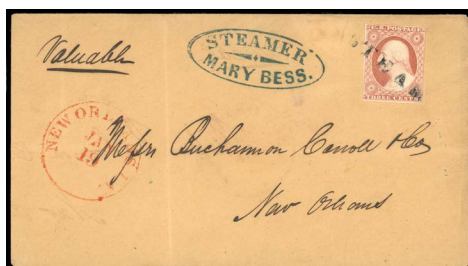 Valuable
STEAMER
MARY BESS.
U.S. POSTAGE
STEAM
THREE CENTS
NEW ORLEANS
JA
19
Messrs Buchannon Carroll & Co
New Orleans